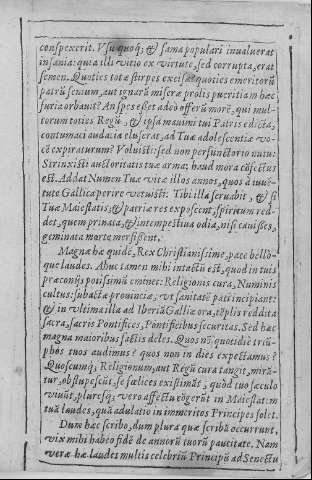 conspexerit. Vsu quoq́; & fama populari inualuerat
insania: quia illi vitio ex virtute, sed corrupta, erat
semen. Quoties totæ stirpes excisæ? quoties emeritorū
patrū senium, aut ignarū miseræ prolis pueritiam hæc
furia orbauit? An spes esset adeò offerū morē, qui mul-
torum toties Regū, & ipsa maximi tui Patris edicta,
contumaci audacia eluserat, ad Tuæ adolescentiæ vo-
cē expiraturum? Voluisti: sed non perfunctorio nutu:
Strinxisti auctoritatis tuæ arma: haud mora cōsectus
est. Addat Numen Tuæ vitæ illos annos, quos à iuuē-
tute Gallica perire vetuisti: Tibi illa seruabit, & si
Tuæ Maiestatis, & patriæ res exposcent, spiritum red-
det, quem prius, & intempestiua odia, nisi cauisses,
geminata morte mersissent.
Magnæ hæ quidē, Rex Christianissime, pace bello-
que laudes. Ahuc tamen mihi intactū est, quod in tuis
præconijs potissimū eminet: Religionis cura, Numinis
cultus: subactæ prouinciæ, vt sanitatē pati incipiant:
& in vltima illa ad Iberiā Galliæ ora, tēplis reddita
sacra, sacris Pontifices, Pontificibus securitas. Sed hæc
magna maioribus factis deles. Quos nū quotidie triū-
phos tuos audimus? quos non in dies expectamus?
Quoscumq́; Religionum, aut Regū cura tangit, mirā-
tur, obstupescūt, se fœlices existimāt, quòd tuo sæculo
viuūt, pluresq́; vero affectu cōgerūt in Maiestatem
tuā laudes, quā adulatio in immeritos Principes solet.
Dum hæc scribo, dum plura quæ scribā occurrunt,
vix mihi habeo fidē de annorū tuorū paucitate. Nam
veræ hæ laudes multis celebriū Principū ad Senectu